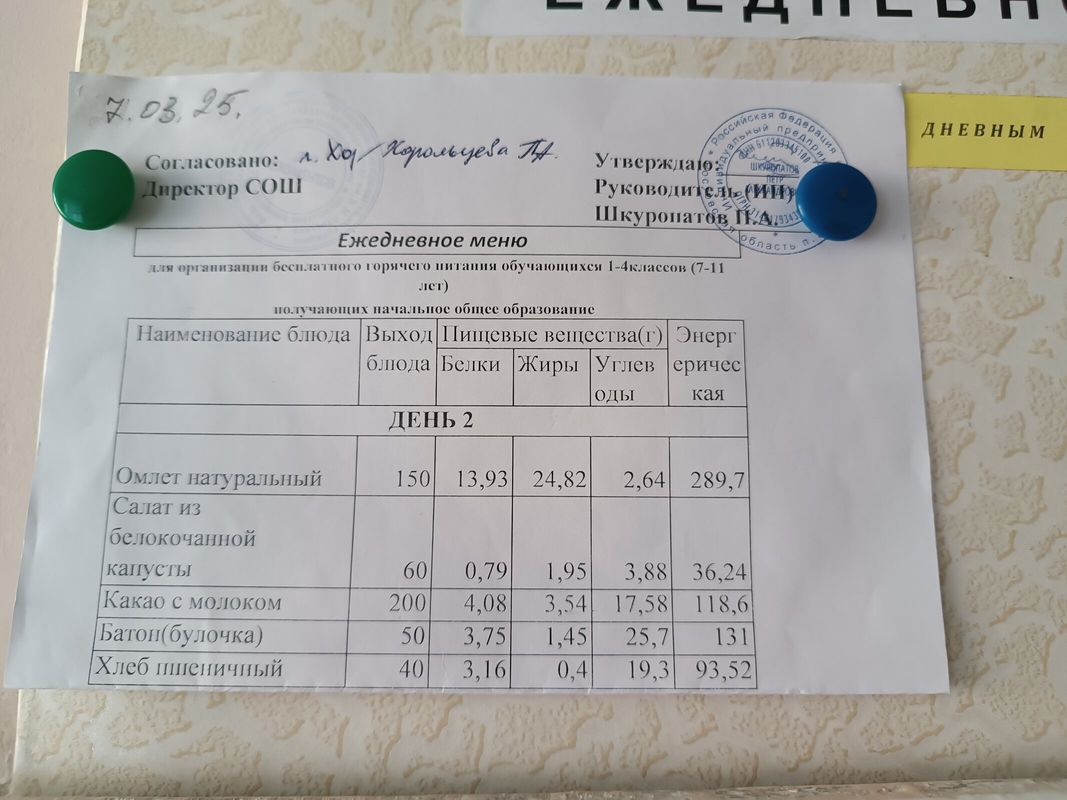 ЕЖЕДНЕВНО
ДНЕВНЫМ
7.03.25.
Согласовано: Хорольцева
Директор СОШ
Утверждаю:
Руководитель (ИП)
Шкуропатов П.А.
Российская Федерация
ШКУРОПАТОВ
ПЕТР
Ежедневное меню
для организации бесплатного горячего питания обучающихся 1-4классов (7-11
лет)
получающих начальное общее образование
Наименование блюда Выход блюда Пищевые вещества(г) Энерг еричес кая
Белки Жиры Углев оды
ДЕНЬ 2
Омлет натуральный 150 13,93 24,82 2,64 289,7
Салат из
белокочанной
капусты 60 0,79 1,95 3,88 36,24
Какао с молоком 200 4,08 3,54 17,58 118,6
Батон(булочка) 50 3,75 1,45 25,7 131
Хлеб пшеничный 40 3,16 0,4 19,3 93,52